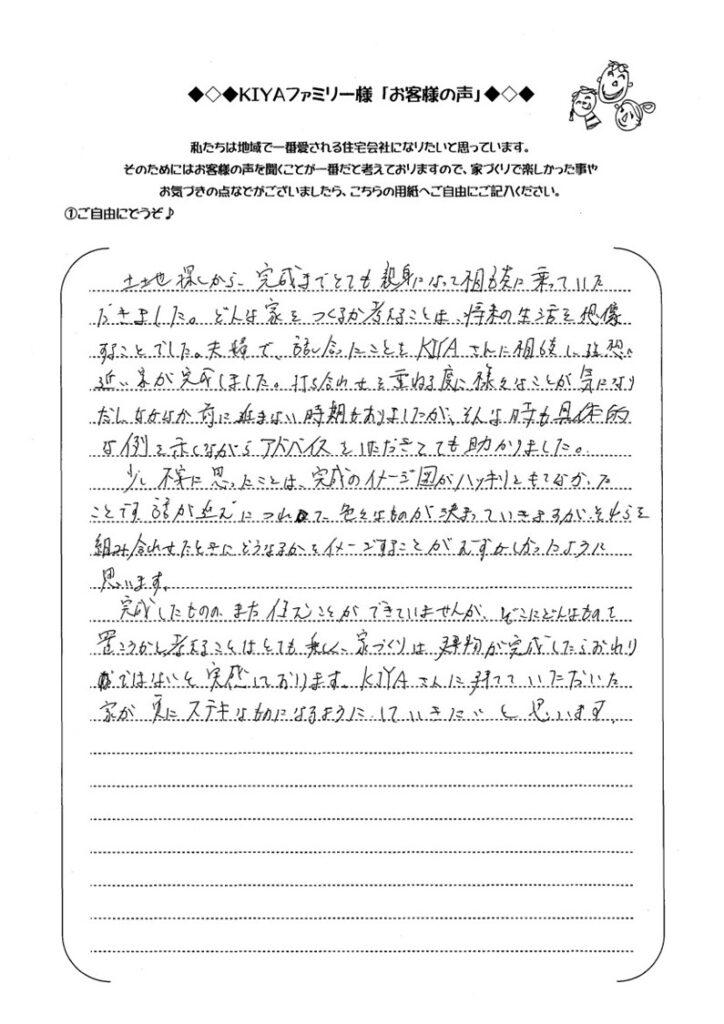 ◆◇◆KIYAファミリー様「お客様の声」◆◇◆
私たちは地域で一番愛される住宅会社になりたいと思っています。
そのためにはお客様の声を聞くことが一番だと考えておりますので、家づくりで楽しかった事や
お気づきの点などがございましたら、こちらの用紙へご自由にご記入ください。
①ご自由にどうぞ♪
土地探しから、完成までとても親身になって相談に乗っていた
だきました。どんな家をつくるか考えることは、将来の生活を想像
することでした。夫婦で、話し合ったことをKIYAさんに相談し、理想に
近い家が完成しました。打ち合わせを重ねる度に様々なことが気になり
だしなかなか前に進まない時期もありましたが、そんな時も具体的
な例を示しながらアドバイスをいただきとても助かりました。
少し不安に思ったことは、完成のイメージ図がハッキリともてなかった
ことです。話が進むにつれて色々なものが決まっていきますが、それらを
組み合わせたときにどうなるかをイメージすることがむずかしかったように
思います。
完成したものの、まだ住むことができていませんが、どこにどんなものを
置こうかと考えることはとても楽しく、家づくりは建物が完成したらおわり
ではないと実感しております。KIYAさんに建てていただいた
家が更にステキなものになるようにしていきたいと思います。